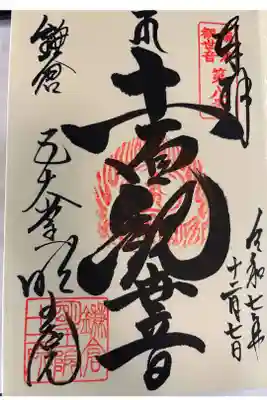 奉拝
令和七年
十二月七日
十一面観世音
鎌倉
五大堂明王院